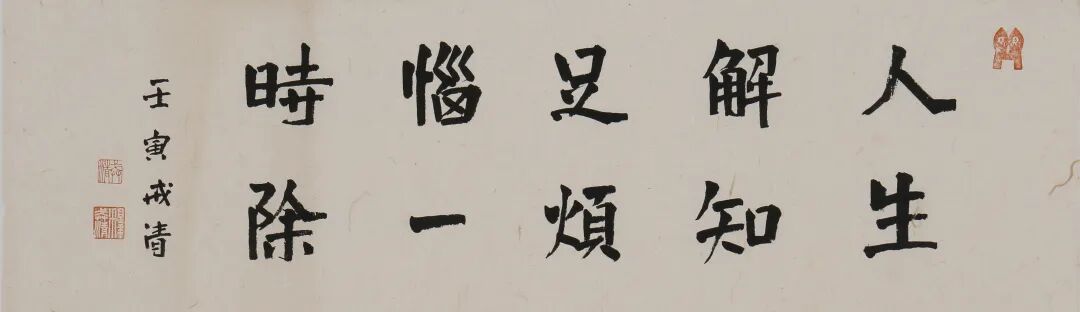 人生
解知
足煩
惱一
時除
壬寅戒清